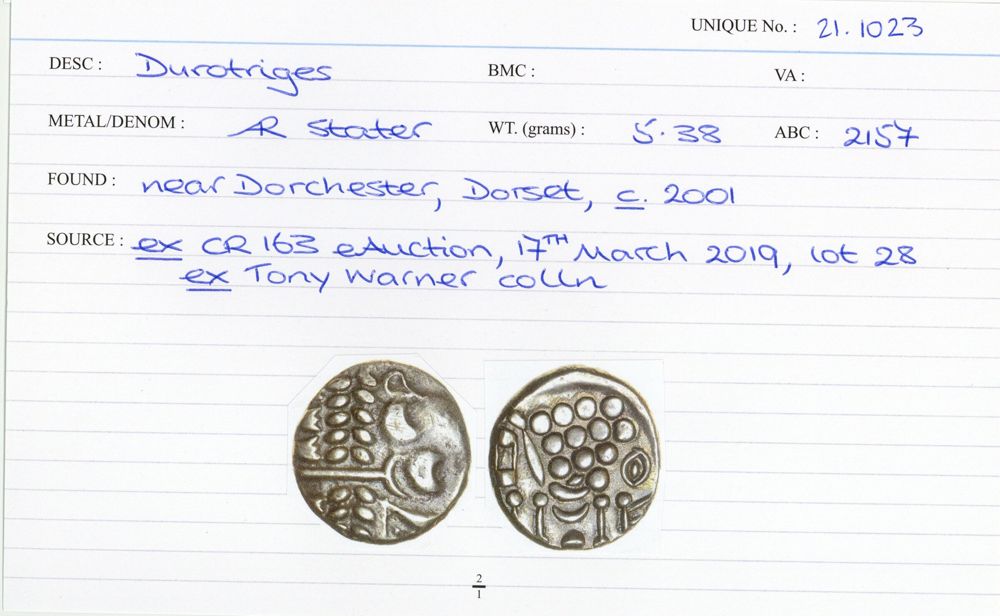 UNIQUE No. : 21.1023
DESC : Durotriges BMC : VA :
METAL/DENOM : AR Stater WT. (grams) : 5.38 ABC : 2157
FOUND : near Dorchester, Dorset, c. 2001
SOURCE : ex CR 163 eAuction, 17TH March 2019, lot 28
ex Tony Warner colln
2
1